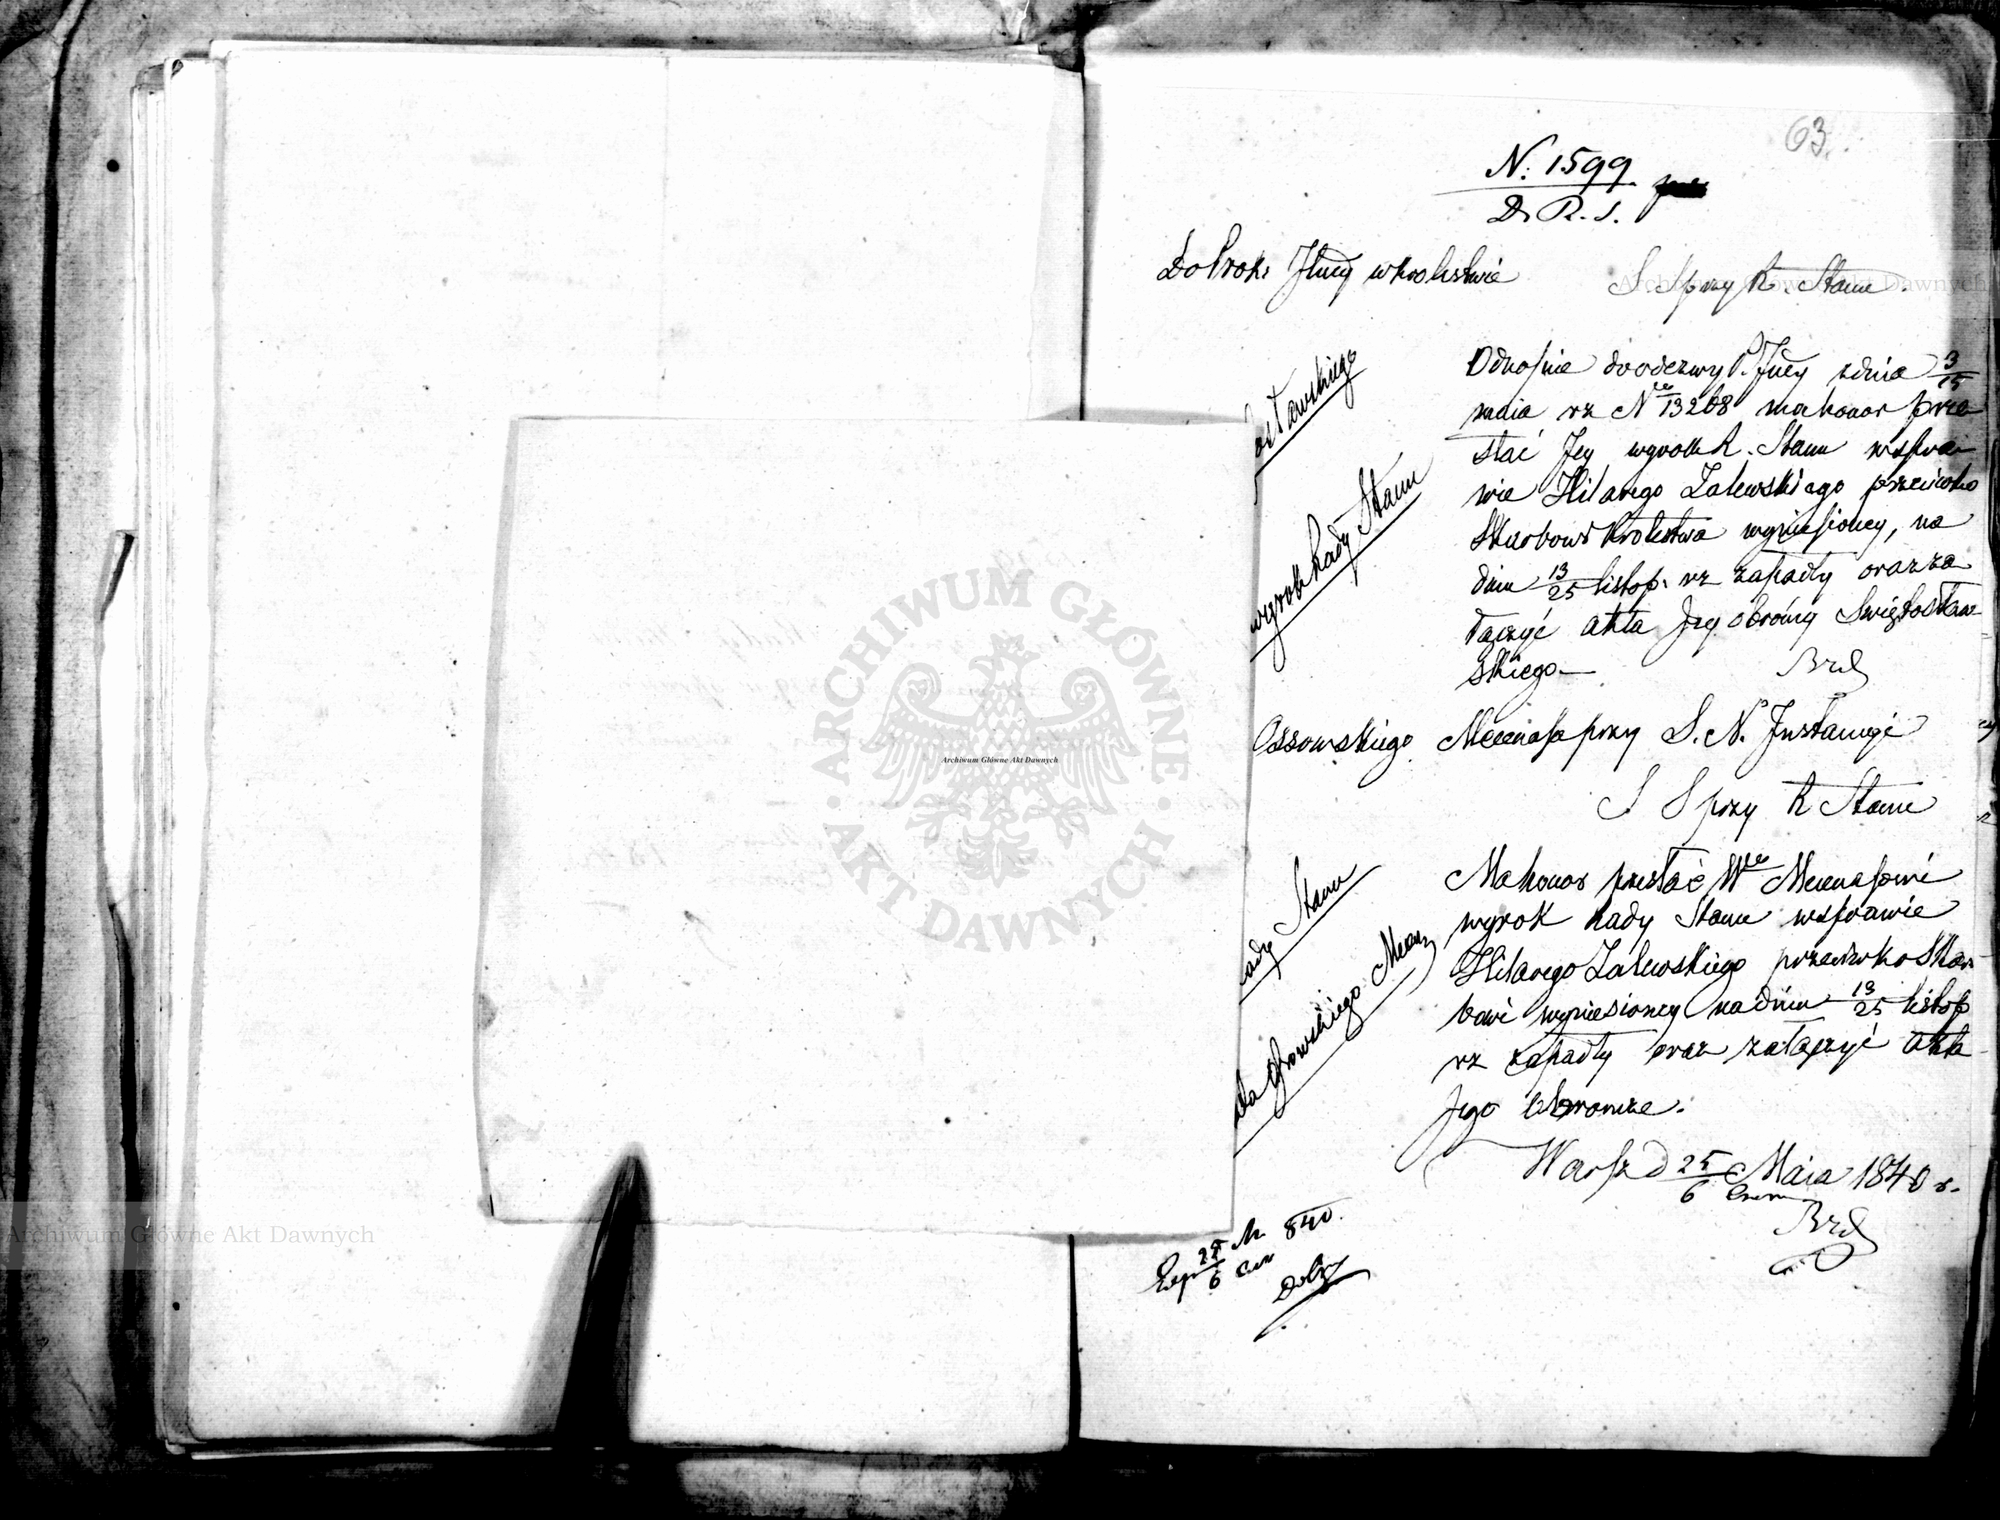 63.
N. 1599.
D. R. S.
Do Prok: Jlney w Krolestwie
S. S przy R. Stanu.
Odnośnie do odezwy P. Jlney z dnia 3/15
maia rz Nro 13208 ma honor prze
słać Jey wyrok R. Stanu w spra
wie Hilarego Zalewskiego przeciwko
Skarbowi Krolestwa wyniesioney, na
dniu 13/25 listop: rz zapadły oraz za
łączyć akta Jey obrońcy Swiętosław
skiego
Brd
wyrok Rady Stanu
Ossowskiego Mecenasa przy S. N. Jnstancyi
S S przy R Stanu
Ma honor przesłać Wu Mecenasowi
wyrok Rady Stanu w sprawie
Hilarego Zalewskiego przeciwko Skar
bowi wyniesioney na dniu 13/25 listop
rz zapadły oraz załączyć akta
Jego obrończe.
Stanu
Warsz d 25/6 Maia Czerw 1840 r.
Brd
Exp 25/6 M. Czer 840.
Archiwum Główne Akt Dawnych
ARCHIWUM GŁÓWNE
AKT DAWNYCH
Archiwum Główne Akt Dawnych
Archiwum Główne Akt Dawnych